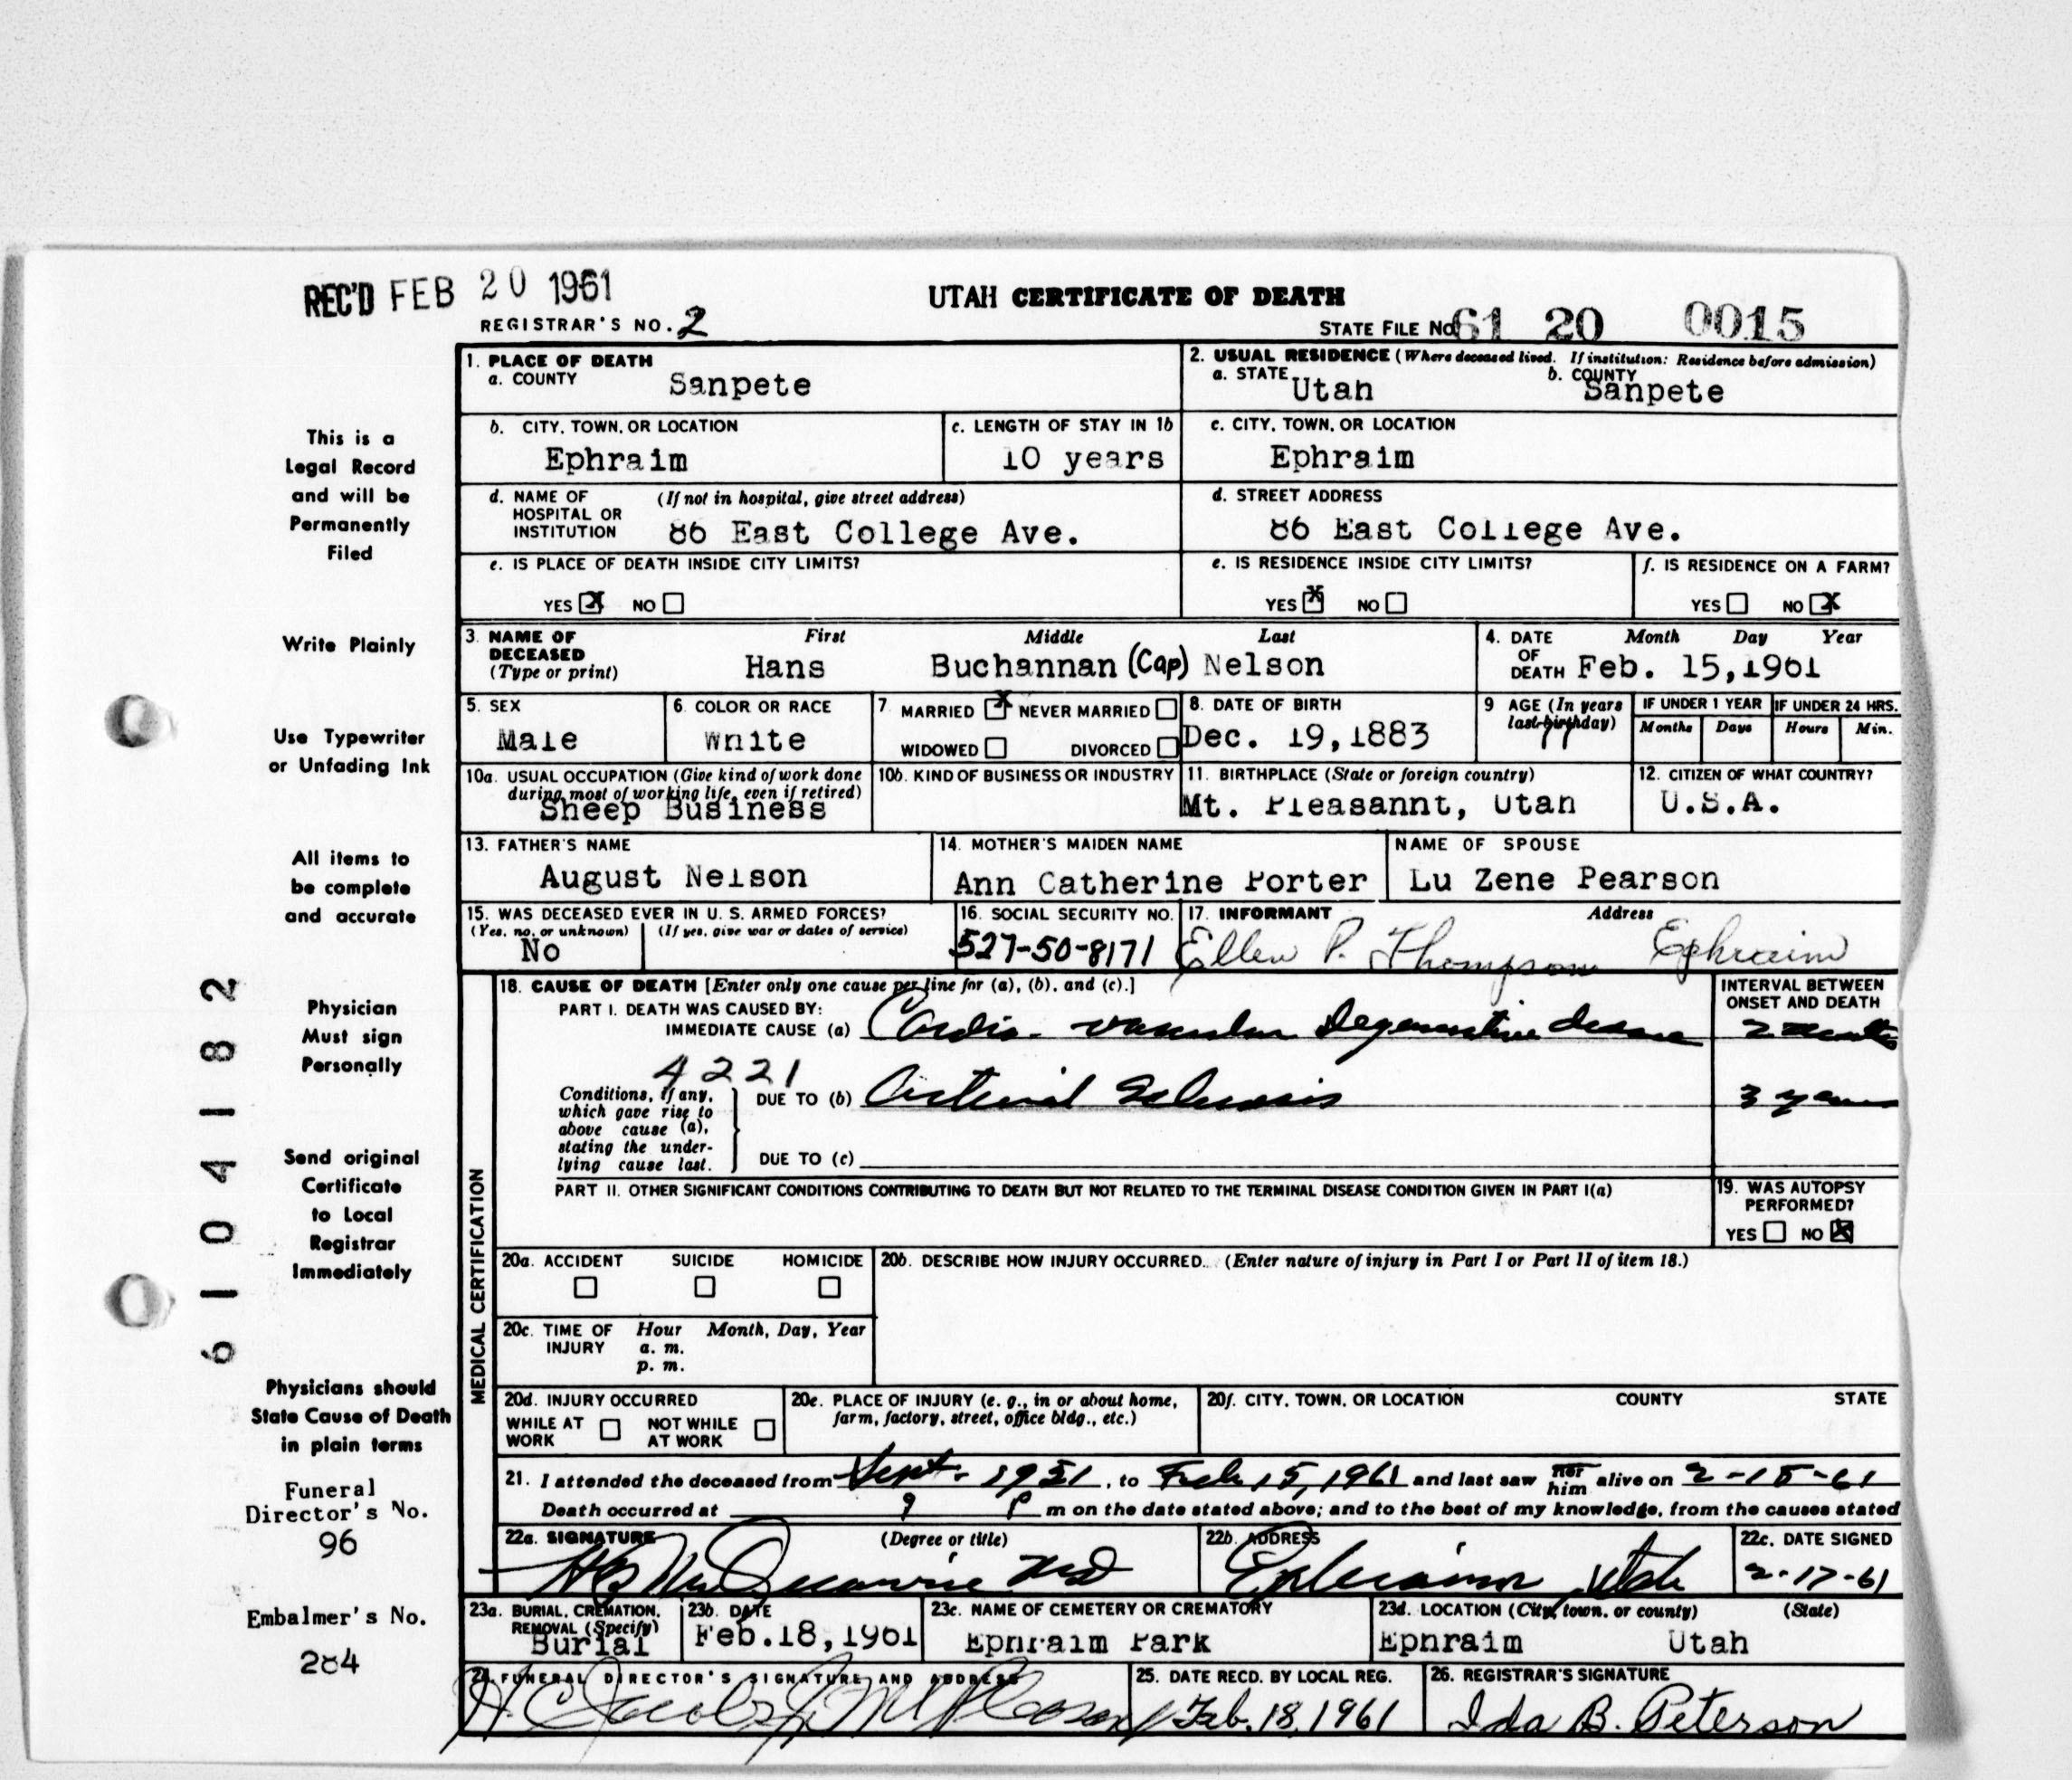 REC'D FEB 20 1961
UTAH CERTIFICATE OF DEATH
REGISTRAR'S NO. 2
STATE FILE No. 61 20 0015
1. PLACE OF DEATH
a. COUNTY Sanpete
2. USUAL RESIDENCE (Where deceased lived. If institution: Residence before admission)
a. STATE Utah b. COUNTY Sanpete
b. CITY, TOWN, OR LOCATION Ephraim
c. LENGTH OF STAY IN 1b 10 years
c. CITY, TOWN, OR LOCATION Ephraim
d. NAME OF HOSPITAL OR INSTITUTION (If not in hospital, give street address) 86 East College Ave.
d. STREET ADDRESS 86 East College Ave.
e. IS PLACE OF DEATH INSIDE CITY LIMITS?
YES X NO
e. IS RESIDENCE INSIDE CITY LIMITS?
YES X NO
f. IS RESIDENCE ON A FARM?
YES NO X
3. NAME OF DECEASED (Type or print)
First Middle Last
Hans Buchannan (Cap) Nelson
4. DATE OF DEATH Month Day Year
Feb. 15,1961
5. SEX Male
6. COLOR OR RACE White
7. MARRIED X NEVER MARRIED
WIDOWED DIVORCED
8. DATE OF BIRTH Dec. 19,1883
9 AGE (In years last birthday) 77
IF UNDER 1 YEAR Months Days
IF UNDER 24 HRS. Hours Min.
10a. USUAL OCCUPATION (Give kind of work done during most of working life, even if retired) Sheep Business
10b. KIND OF BUSINESS OR INDUSTRY
11. BIRTHPLACE (State or foreign country) Mt. Pleasannt, Utah
12. CITIZEN OF WHAT COUNTRY? U.S.A.
13. FATHER'S NAME August Nelson
14. MOTHER'S MAIDEN NAME Ann Catherine Porter
NAME OF SPOUSE Lu Zene Pearson
15. WAS DECEASED EVER IN U. S. ARMED FORCES?
(Yes, no, or unknown) (If yes, give war or dates of service)
No
16. SOCIAL SECURITY NO. 527-50-8171
17. INFORMANT Address
Ellen P. Thompson Ephraim
MEDICAL CERTIFICATION
18. CAUSE OF DEATH [Enter only one cause per line for (a), (b), and (c).]
INTERVAL BETWEEN ONSET AND DEATH
PART I. DEATH WAS CAUSED BY:
IMMEDIATE CAUSE (a) Cardio-vascular Degenerative disease 2 months
4221
Conditions, if any, which gave rise to above cause (a), stating the underlying cause last.
DUE TO (b) Arterial Sclerosis 3 years
DUE TO (c)
PART II. OTHER SIGNIFICANT CONDITIONS CONTRIBUTING TO DEATH BUT NOT RELATED TO THE TERMINAL DISEASE CONDITION GIVEN IN PART I(a)
19. WAS AUTOPSY PERFORMED?
YES NO X
20a. ACCIDENT SUICIDE HOMICIDE
20b. DESCRIBE HOW INJURY OCCURRED. (Enter nature of injury in Part I or Part II of item 18.)
20c. TIME OF INJURY Hour Month, Day, Year
a. m.
p. m.
20d. INJURY OCCURRED
WHILE AT WORK NOT WHILE AT WORK
20e. PLACE OF INJURY (e. g., in or about home, farm, factory, street, office bldg., etc.)
20f. CITY, TOWN, OR LOCATION COUNTY STATE
21. I attended the deceased from Sept. 1951, to Feb 15, 1961 and last saw her him alive on 2-15-61
Death occurred at 9 P m on the date stated above; and to the best of my knowledge, from the causes stated
22a. SIGNATURE (Degree or title)
MD
22b. ADDRESS Ephraim, Utah
22c. DATE SIGNED 2-17-61
23a. BURIAL, CREMATION, REMOVAL (Specify) Burial
23b. DATE Feb.18,1961
23c. NAME OF CEMETERY OR CREMATORY Ephraim Park
23d. LOCATION (City, town, or county) (State)
Ephraim Utah
24. FUNERAL DIRECTOR'S SIGNATURE AND ADDRESS
25. DATE RECD. BY LOCAL REG. Feb. 18, 1961
26. REGISTRAR'S SIGNATURE Ida B. Peterson
This is a
Legal Record
and will be
Permanently
Filed
Write Plainly
Use Typewriter
or Unfading Ink
All items to
be complete
and accurate
Physician
Must sign
Personally
Send original
Certificate
to Local
Registrar
Immediately
Physicians should
State Cause of Death
in plain terms
Funeral
Director's No.
96
Embalmer's No.
284
61 04182